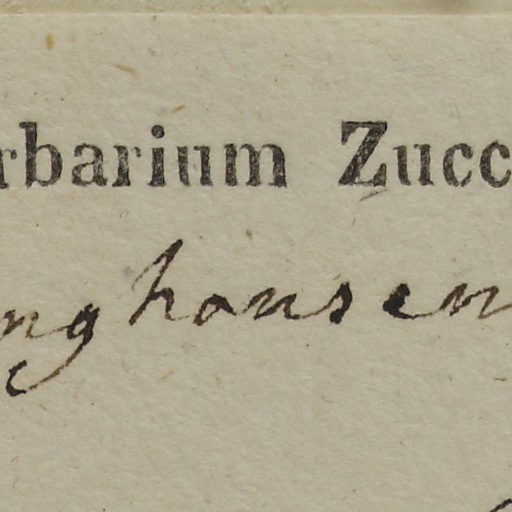 rbarium Zucc
nghausen